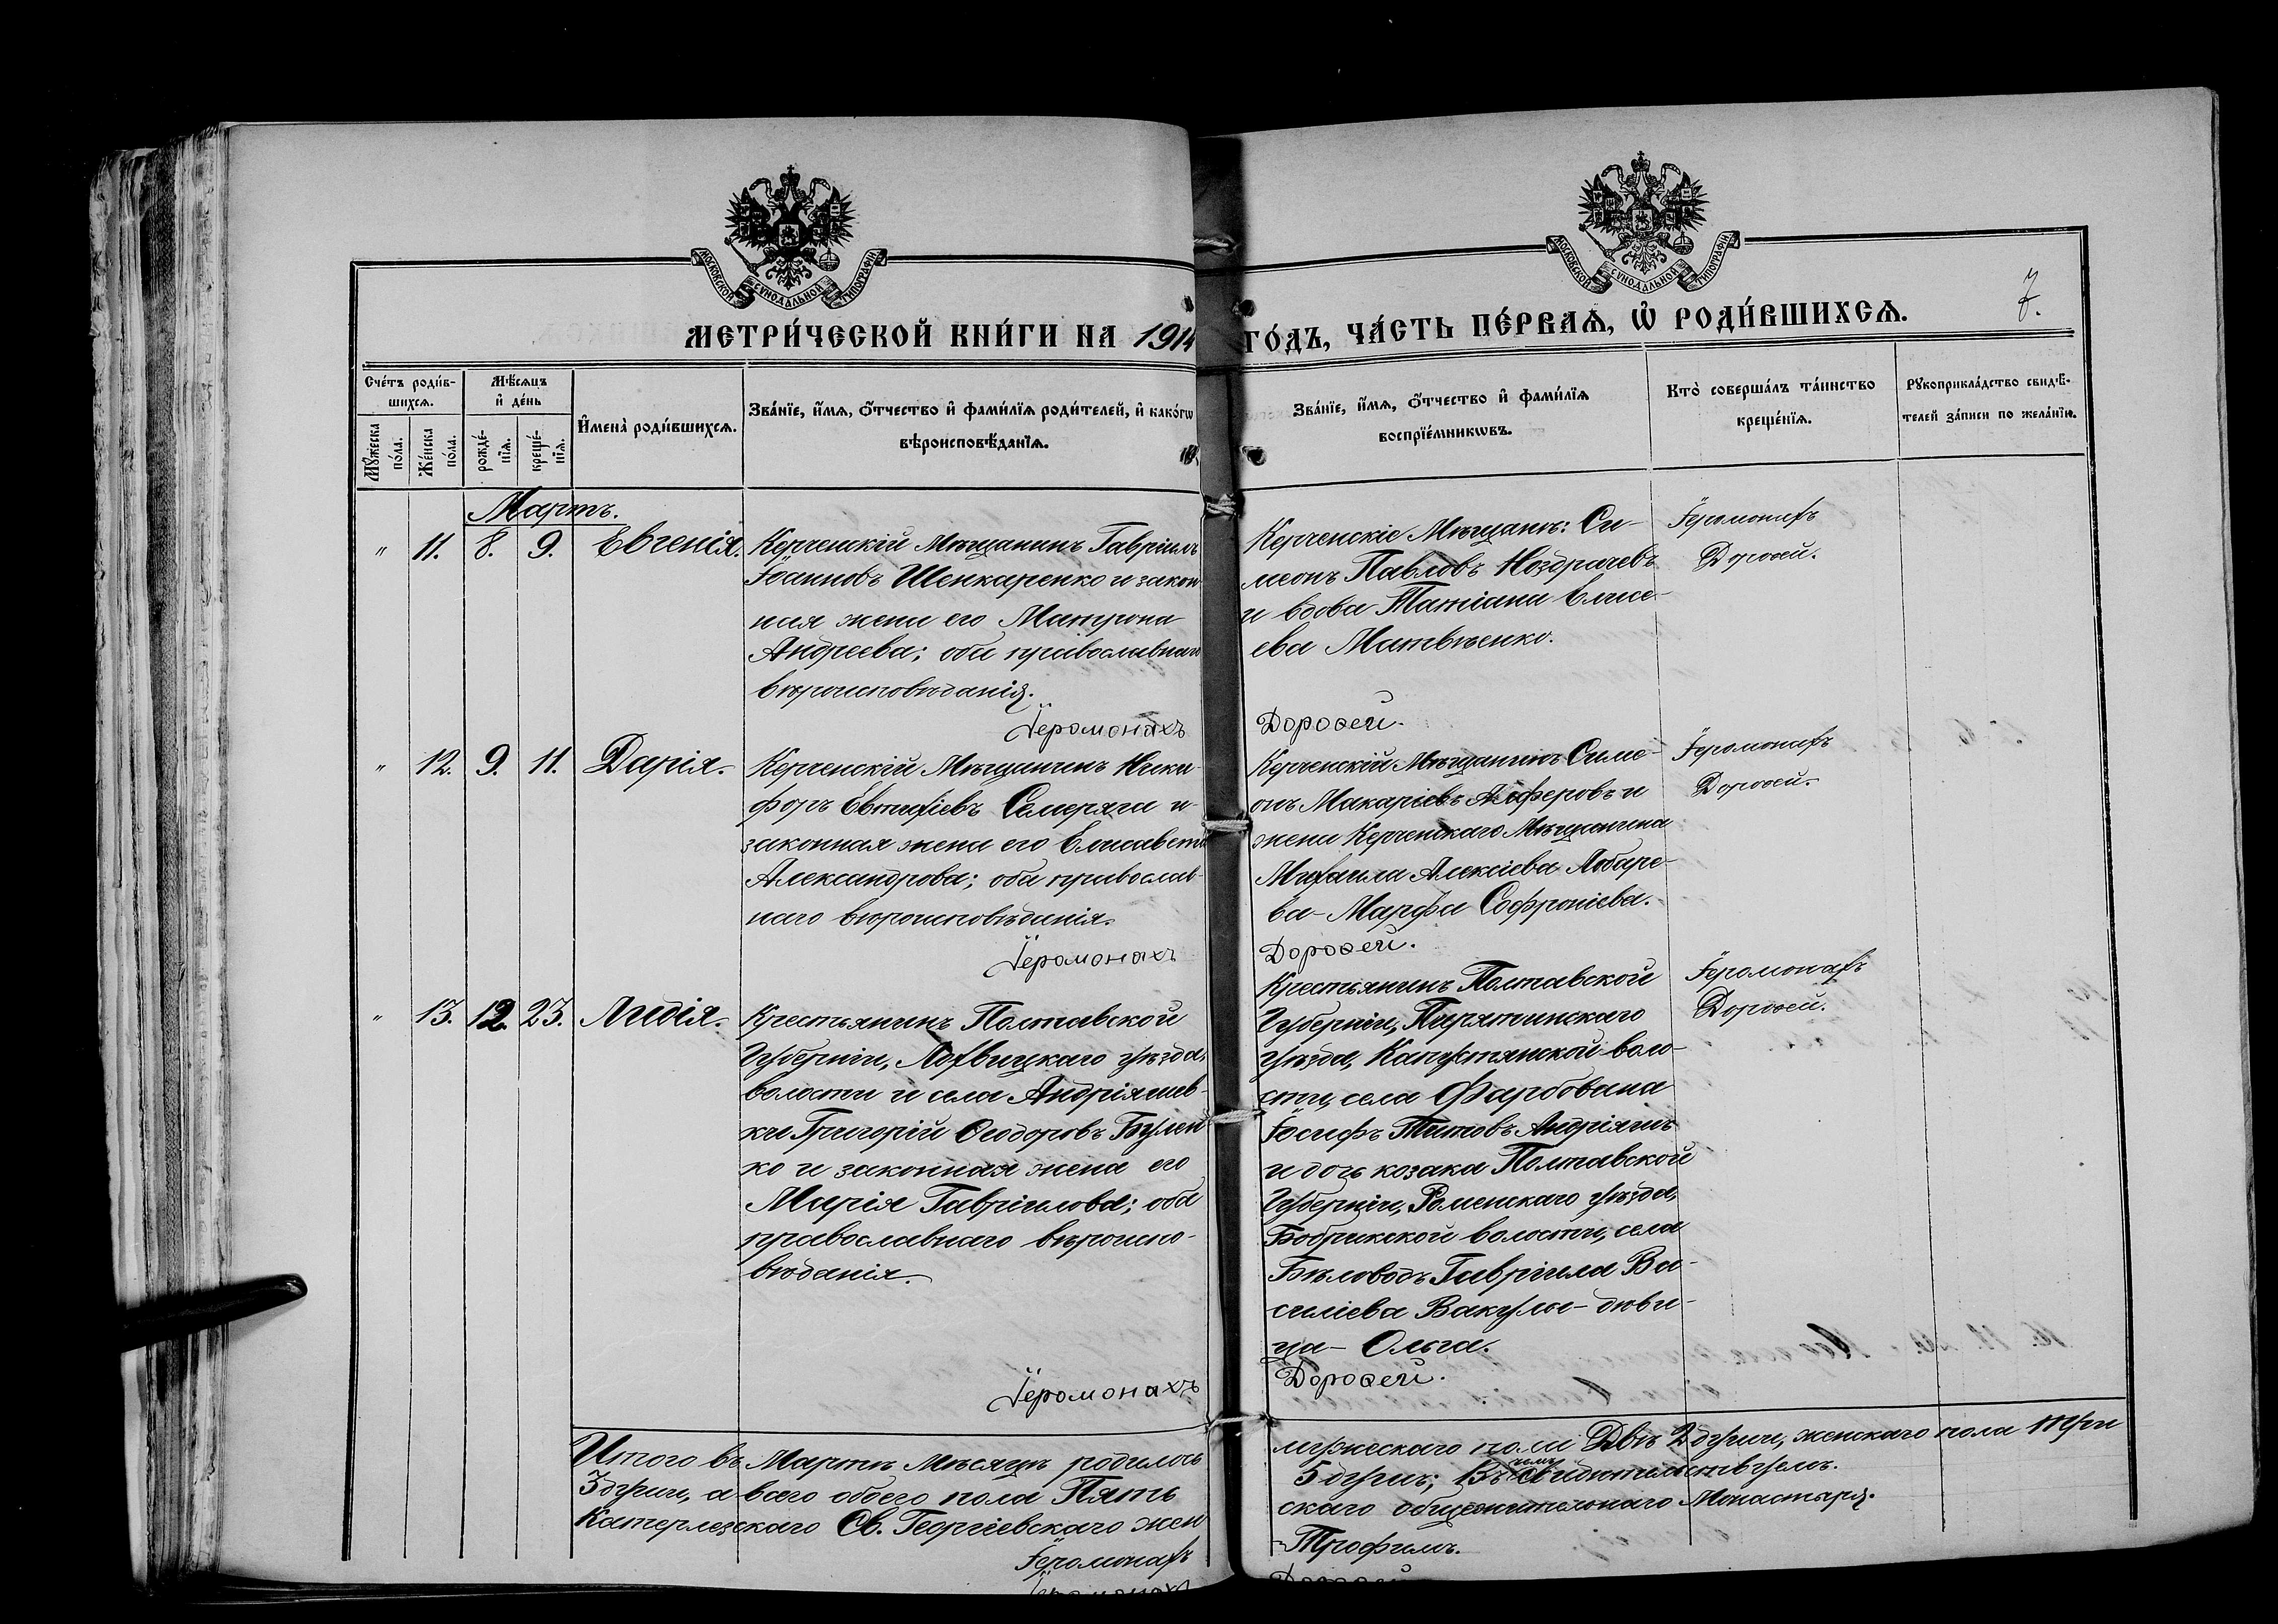 МОСКОВСКОЙ СѴНОДАЛЬНОЙ ТИПОГРАФІИ
МОСКОВСКОЙ СѴНОДАЛЬНОЙ ТИПОГРАФІИ
МЕТРИ́ЧЕСКОЙ КНИ́ГИ НА 1914 ГО́ДЪ, ЧА́СТЬ ПЕ́РВАѦ, Ѡ҆ РОДИ́ВШИХСѦ.
7.
Сче́тъ роди́в-
шихсѧ.
Мѣ́сѧцъ
и҆ де́нь
Мꙋ́жеска
по́ла.
Же́нска
по́ла.
рожде́-
нїѧ.
креще́-
нїѧ.
И҆мена̀ роди́вшихсѧ.
Зва́нїе, и҆́мѧ, ѻ҆́тчество и҆ фами́лїѧ роди́телей, и҆ како́гѡ
вѣроисповѣ́данїѧ.
Зва́нїе, и҆́мѧ, ѻ҆́тчество и҆ фами́лїѧ
воспрїе́мникѡвъ.
Кто̀ соверша́лъ та́инство
креще́нїѧ.
Рꙋкоприкла́дство свидѣ́-
телей за́писи по жела́нїю.
Мартъ.
" 11. 8. 9. Евгенія.
Керченскій Мѣщанинъ Гавріилъ
Іоанновъ Шенкаренко и закон
ная жена его Матрона
Андреева; оба православнаго
вѣроисповѣданія.
Іеромонахъ
Керченскіе Мѣщане: Си-
меонъ Павловъ Ноздрачевъ
и вдова Татіана Елисе-
ева Матвѣенко.
Дороѳей.
Іеромонахъ
Дороѳей.
" 12. 9. 11. Дарія.
Керченскій Мѣщанинъ Ники-
форъ Евтихіевъ Семеряга и
законная жена его Елисавета
Александрова; оба православ-
наго вѣроисповѣданія.
Іеромонахъ
Керченскій Мѣщанинъ Симе-
онъ Макаріевъ Алферовъ и
жена Керченскаго Мѣщанина
Михаила Алексіева Лобаре-
ва - Марфа Софроніева.
Дороѳей.
Іеромонахъ
Дороѳей.
" 13. 12. 23. Лидія.
Крестьянинъ Полтавской
Губерніи, Лохвицкаго уѣзда,
волости и села Андріяшев-
ки Григорій Ѳеодоровъ Булен
ко и законная жена его
Марія Гавріилова; оба
православнаго вѣроиспо-
вѣданія.
Іеромонахъ
Крестьянинъ Полтавской
Губерніи, Пирятинскаго
уѣзда, Капустянской воло-
сти, села Фарбована
Іосифъ Титовъ Андріяшъ
и дочь козака Полтавской
Губерніи, Роменскаго уѣзда,
Бобрикской волости, села
Бѣловодъ Гавріила Ва-
силіева Вакулы - дѣви-
ца - Ольга.
Дороѳей.
Іеромонахъ
Дороѳей.
Итого въ Мартѣ Мѣсяцѣ родилось мужескаго пола Двѣ 2 души, женскаго пола три
3 души, а всего обоего пола Пять 5 душъ; Въ чемъ свидѣтельствуемъ.
Катерлезскаго Св. Георгіевскаго жен скаго общежительнаго Монастыря.
Іеромонахъ Трофимъ.
Іеромонахъ Дороѳей